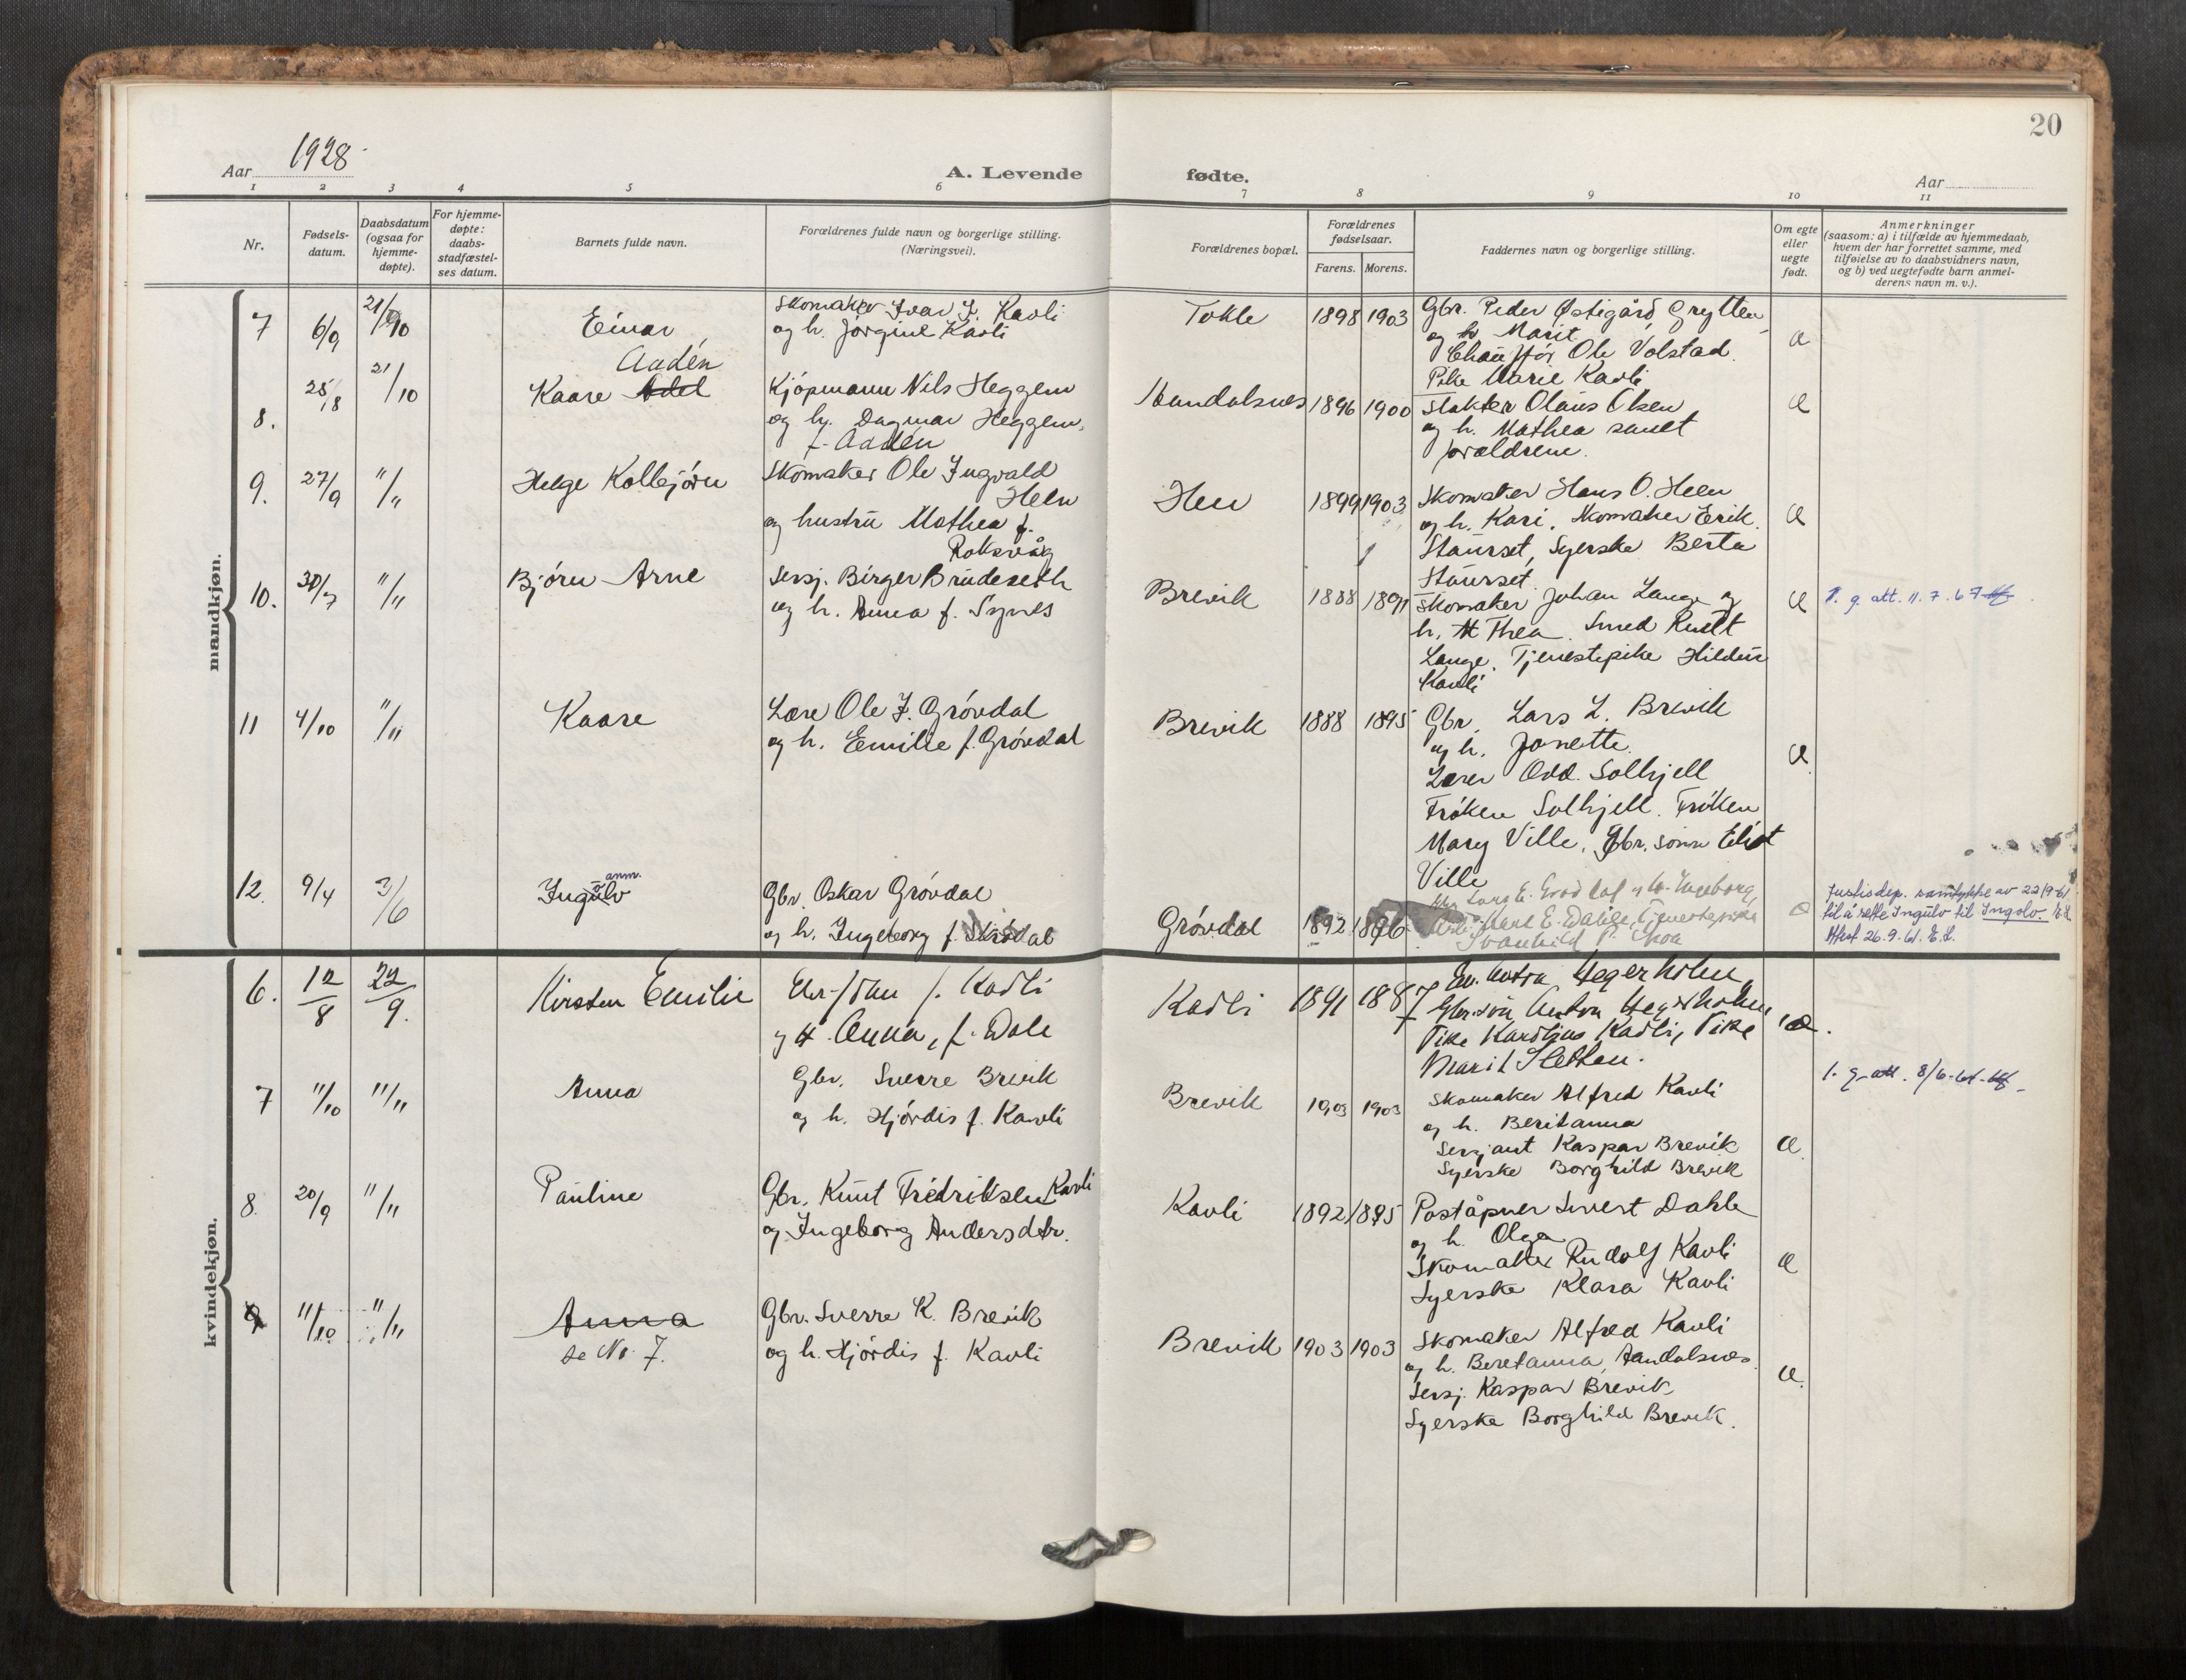 20
Aar 1928
A. Levende fødte.
Aar
1 2 3 4 5 6 7 8 9 10 11
Nr.
Fødsels-
datum.
Daabsdatum
(ogsaa for
hjemme-
døpte).
For hjemme-
døpte:
daabs-
stadfæstel-
ses datum.
Barnets fulde navn.
Forældrenes fulde navn og borgerlige stilling.
(Næringsvei).
Forældrenes bopæl.
Forældrenes
fødselsaar.
Farens. Morens.
Faddernes navn og borgerlige stilling.
Om egte
eller
uegte
født.
Anmerkninger
(saasom: a) i tilfælde av hjemmedaab,
hvem der har forrettet samme, med
tilføielse av to daabsvidners navn,
og b) ved uegtefødte barn anmel-
derens navn m. v.).
mandkjøn.
7 6/9 21/10 Einar
Skomaker Ivar J. Kavli
og h. Jørgine Kavli
Tokle 1898 1903
Gbr. Peder Østigård Grytten
og h. Marit
Chauffør Ole Volstad.
Pike Marie Kavli
8. 25/8 21/10
Aadén
Kaare
Kjøpmann Nils Heggem
og h. Dagmar Heggem.
f. Aadén
Aandalsnes 1896 1900
Slakter Olaus Olsen
og h. Mathea samt
forældrene.
9. 27/9 "/" Helge Kolbjørn
Skomaker Ole Ingvald
Helen
og hustru Mathea f.
Roksvåg
Hen 1899 1903
Skomaker Hans O. Helen
og h. Kari. Skomaker Erik
Staurset, Syerske Berta
Staurset.
10. 30/7 "/" Bjørn Arne
Sersj. Birger Brudeseth
og h. Anna f. Synes
Brevik 1888 1891
Skomaker Johan Lange og
h. Thea. Smed Knut
Lange. Tjenestepike Hildur
Kavli
1. g. att. 11.7.67
11 4/10 "/" Kaare
Lære Ole J. Grøvdal
og h. Emilie f. Grøvdal
Brevik 1888 1895
Gbr. Lars L. Brevik
og h. Janette.
Lærer Odd. Solhjell
Frøken Solhjell. Frøken
Mary Ville. Gbr. sønn Eliot
Ville
12. 9/4 3/6 Ingulv anm.
Gbr. Oskar Grøvdal
og h. Ingeborg f.
Grøvdal 1892 1896
E. Grøvdal h. Ingeborg
E. Dahle, Tjenestepike
Svanhild P.
Justisdep. samtykke av 22/9-61
til å rette Ingulv til Ingolv. E.L.
Attest 26.9.61. E.L.
kvindekjøn.
6. 12/8 22/9. Kirsten Emilie
J. Kavli
og H. Anna, f. Dale
Kavli 1891 1887
Hegerholm
Gbr.søn Anton Hegerholm
Pike Kavli, Pike
Marit Sletten.
7 11/10 11/11 Anna
Gbr. Sverre Brevik
og h. Hjørdis f. Kavli
Brevik 1903 1903
Skomaker Alfred Kavli
og h. Beritanna
Sersjant Kaspar Brevik
Syerske Borghild Brevik
1. g. att. 8/6-61
8. 20/9 "/" Pauline
Gbr. Knut Fredriksen Kavli
og Ingeborg Andersdtr.
Kavli 1892 1895
Poståpner Sivert Dahle
og h. Olga
Skomaker Rudolf Kavli
Syerske Klara Kavli
9 11/10 "/" Anna
se No. 7.
Gbr. Sverre K. Brevik
og h. Hjørdis f. Kavli
Brevik 1903 1903
Skomaker Alfred Kavli
og h. Beretanna, Aandalsnes.
Sersj. Kaspar Brevik
Syerske Borghild Brevik.